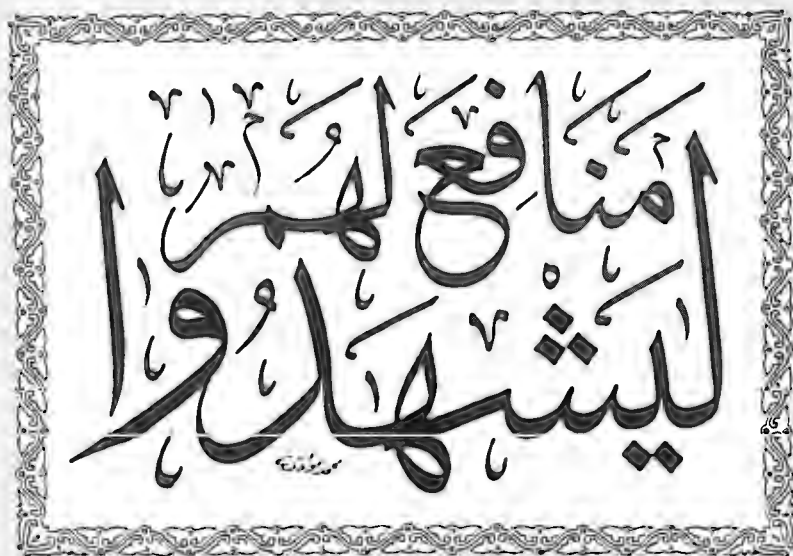 لِيَشْهَدُوا
مَنَافِعَ لَهُمْ